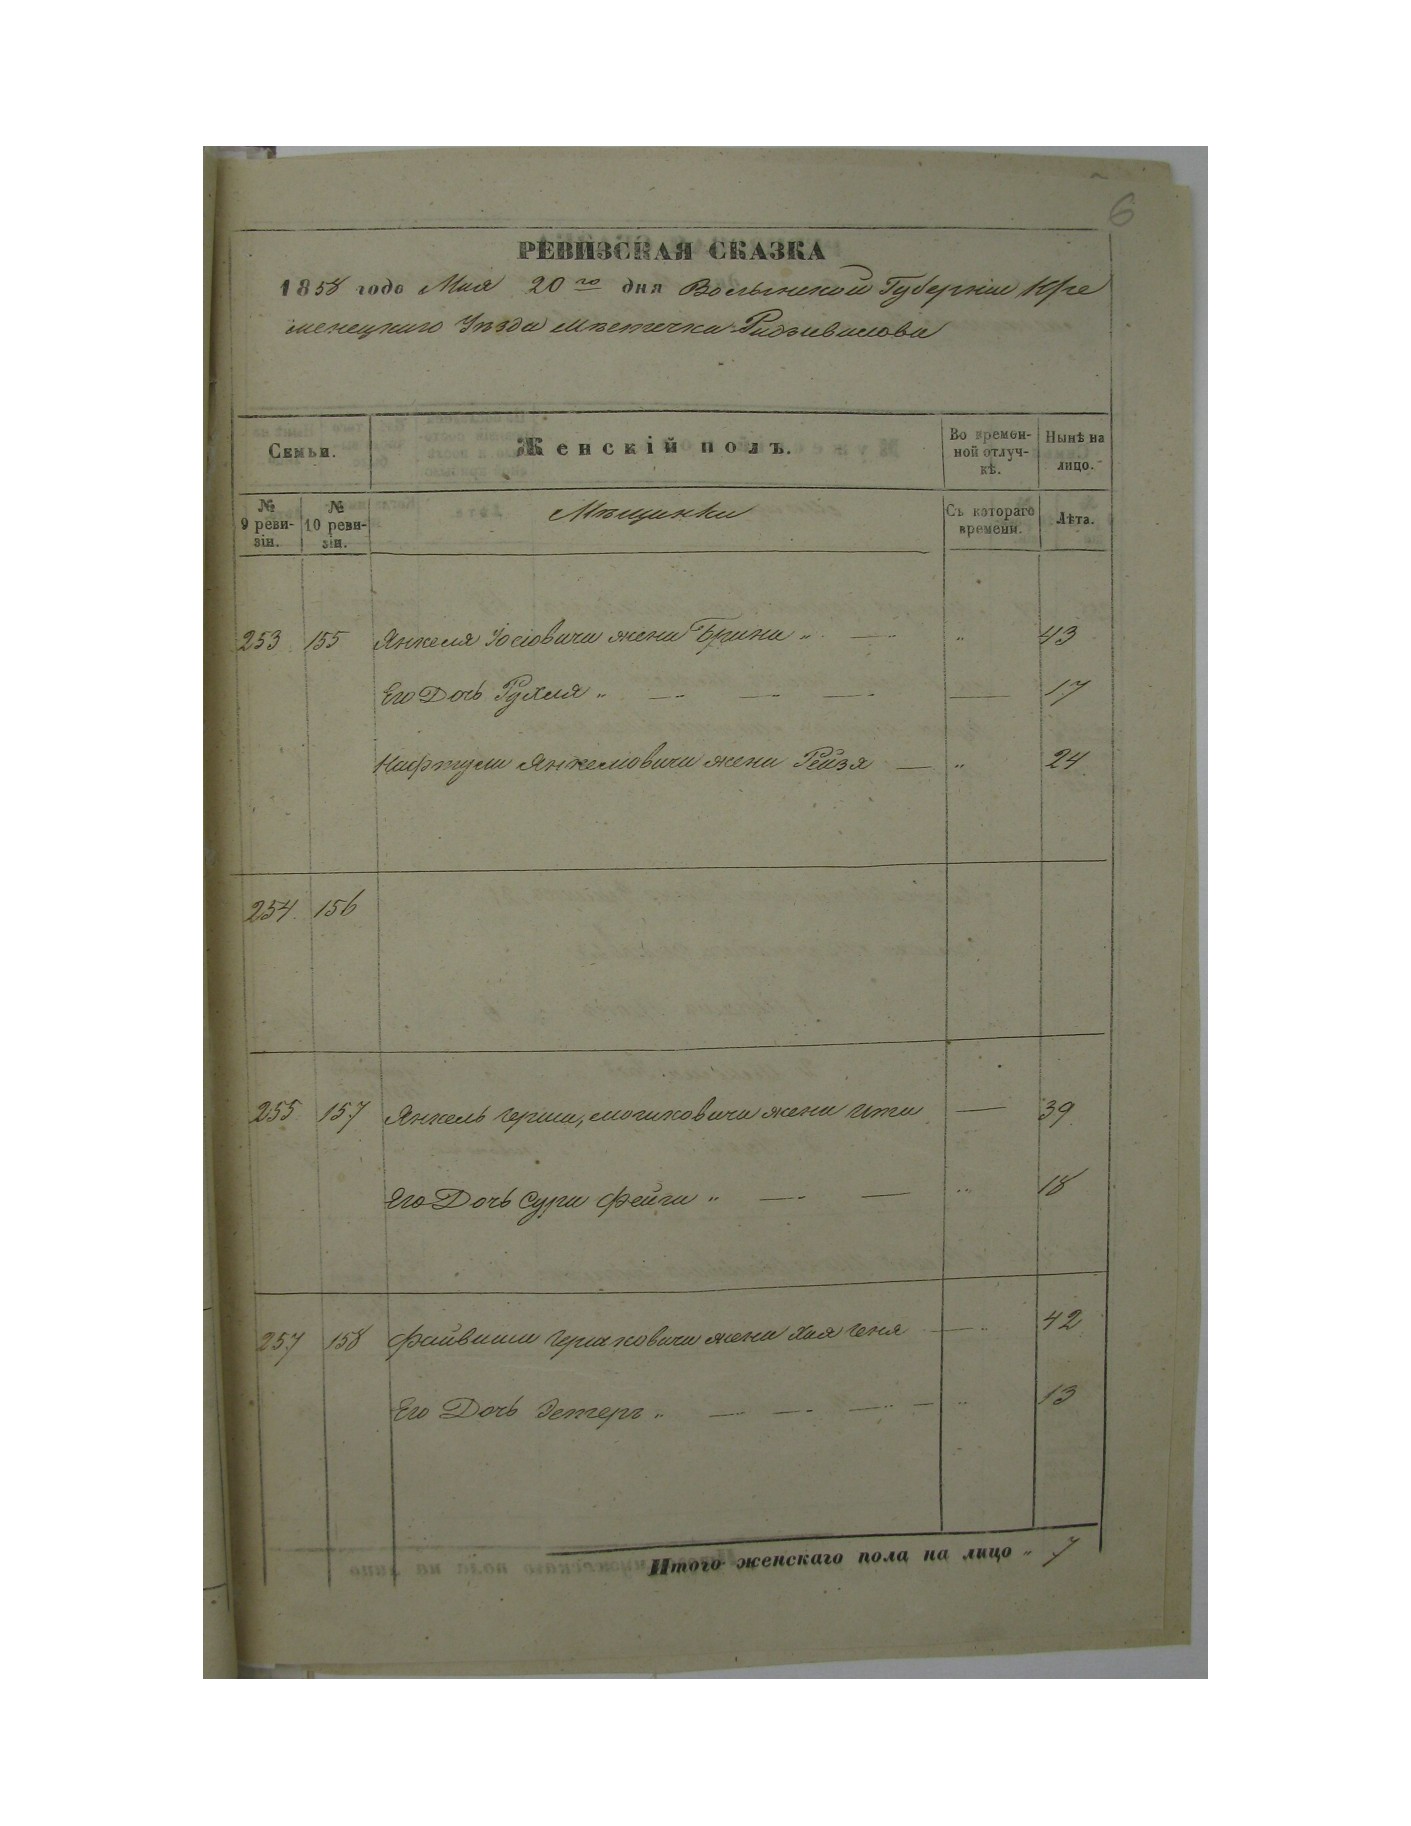 6
РЕВИЗСКАЯ СКАЗКА
1858 года Мая 20го дня Волынской Губернии Кре
менецкаго Уѣзда мѣстечка Радзивилова
Семьи.
Женскій полъ.
Во времен-
ной отлуч-
кѣ.
Нынѣ на
лицо.
№
9 реви-
зіи.
№
10 реви-
зіи.
Мѣщанки
Съ котораго
времени.
Лѣта.
253 155 Янкеля Іосіовича жена Брина „ — „ 43
Его Дочь Рухля „ — — — — 17
Нафтули Янкелювича жена Рейзя — „ 24
254 156
255 157 Янкель Герша, мошковича жена Ита — 39
Его Дочь Сура Фейга „ — — „ 18
257 158 Файвиша Гершковича жена Хая Геня — „ 42
Его Дочь Эстеръ „ — — — — „ 13
Итого женскаго пола на лицо „ 7